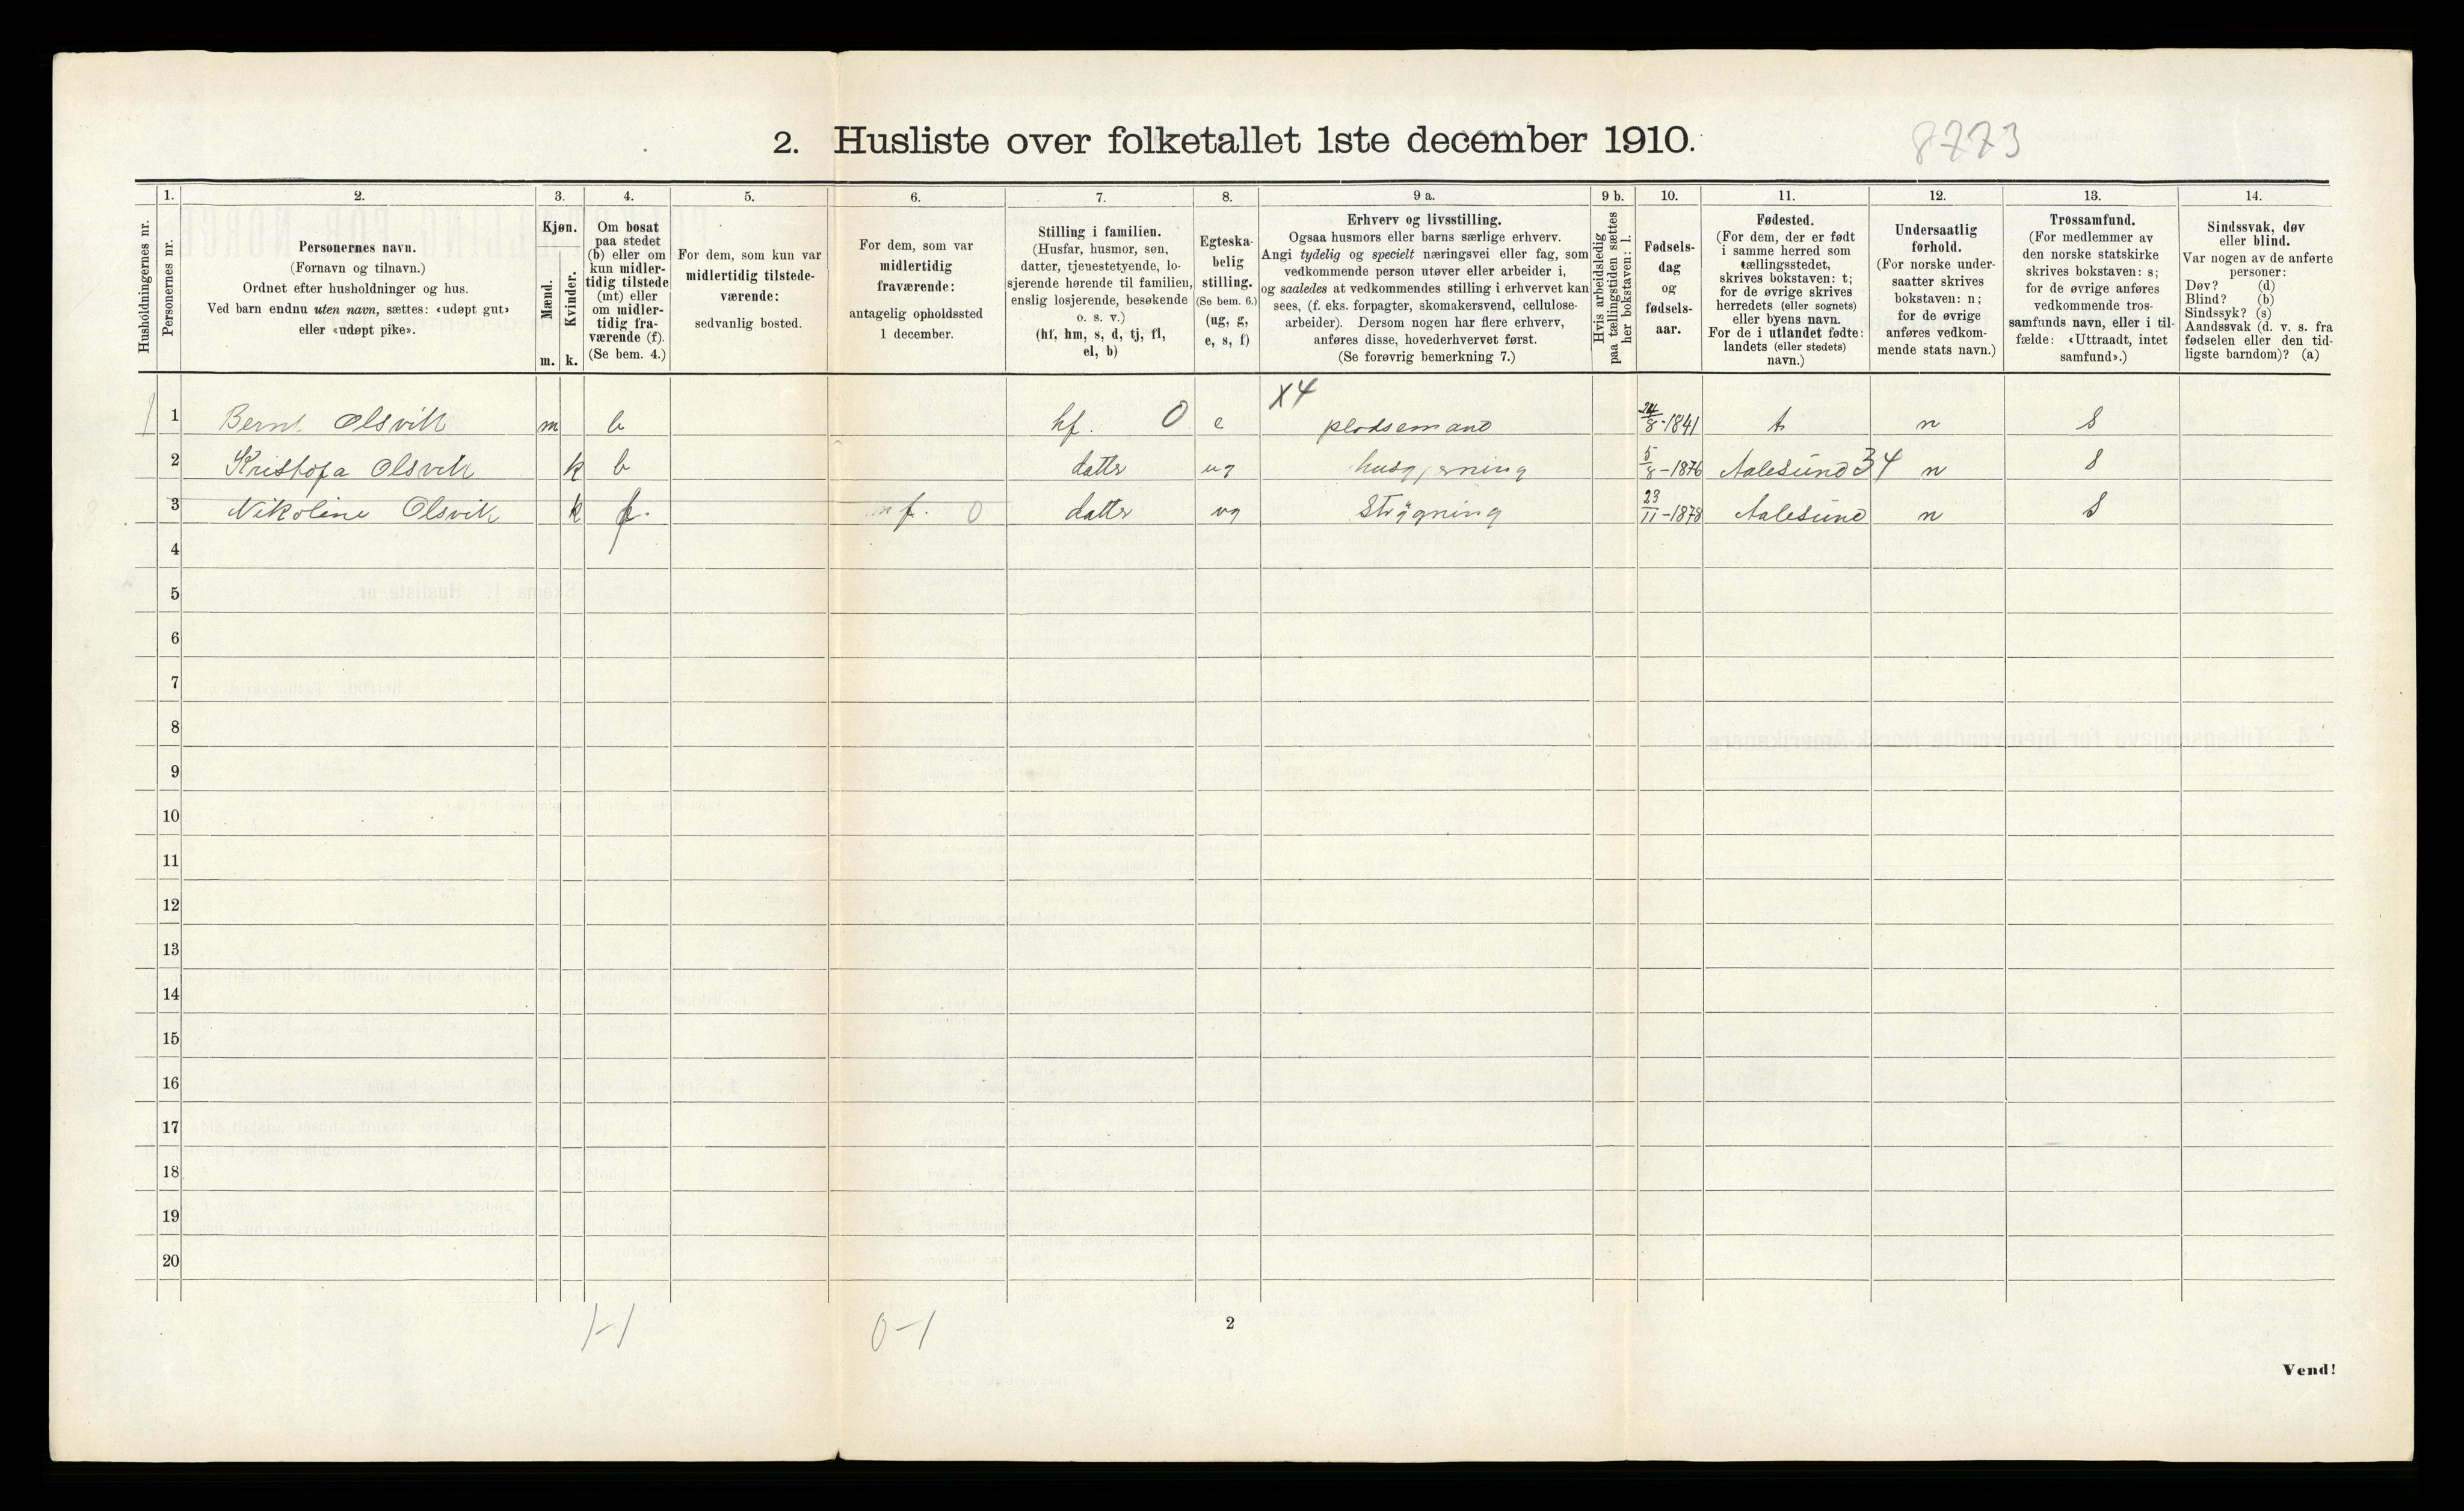 2. Husliste over folketallet 1ste december 1910.
8773
Husholdningernes nr.
1.
Personernes nr.
2.
Personernes navn.
(Fornavn og tilnavn.)
Ordnet efter husholdninger og hus.
Ved barn endnu uten navn, sættes: «udøpt gut»
eller «udøpt pike».
3.
Kjøn.
Mænd.
Kvinder.
m. k.
4.
Om bosat
paa stedet
(b) eller om
kun midler-
tidig tilstede
(mt) eller
om midler-
tidig fra-
værende (f).
(Se bem. 4.)
5.
For dem, som kun var
midlertidig tilstede-
værende:
sedvanlig bosted.
6.
For dem, som var
midlertidig
fraværende:
antagelig opholdssted
1 december.
7.
Stilling i familien.
(Husfar, husmor, søn,
datter, tjenestetyende, lo-
sjerende hørende til familien,
enslig losjerende, besøkende
o. s. v.)
(hf, hm, s, d, tj, fl,
el, b)
8.
Egteska-
belig
stilling.
(Se bem. 6.)
(ug, g,
e, s, f)
9 a.
Erhverv og livsstilling.
Ogsaa husmors eller barns særlige erhverv.
Angi tydelig og specielt næringsvei eller fag, som
vedkommende person utøver eller arbeider i,
og saaledes at vedkommendes stilling i erhvervet kan
sees, (f. eks. forpagter, skomakersvend, cellulose-
arbeider). Dersom nogen har flere erhverv,
anføres disse, hovederhvervet først.
(Se forøvrig bemerkning 7.)
9 b.
Hvis arbeidsledig
paa tællingstiden sættes
her bokstaven: l.
10.
Fødsels-
dag
og
fødsels-
aar.
11.
Fødested.
(For dem, der er født
i samme herred som
tællingsstedet,
skrives bokstaven: t;
for de øvrige skrives
herredets (eller sognets)
eller byens navn.
For de i utlandet fødte:
landets (eller stedets)
navn.)
12.
Undersaatlig
forhold.
(For norske under-
saatter skrives
bokstaven: n;
for de øvrige
anføres vedkom-
mende stats navn.)
13.
Trossamfund.
(For medlemmer av
den norske statskirke
skrives bokstaven: s;
for de øvrige anføres
vedkommende tros-
samfunds navn, eller i til-
fælde: «Uttraadt, intet
samfund».)
14.
Sindssvak, døv
eller blind.
Var nogen av de anførte
personer:
Døv? (d)
Blind? (b)
Sindssyk? (s)
Aandssvak (d. v. s. fra
fødselen eller den tid-
ligste barndom)? (a)
X4
1 1 Bernt Olsvik m b hf. 0 e plodsemand 24/8-1841 t n S
2 Kristofa Olsvik k b datter ug husgjerning 5/8-1876 Aalesund 34 n S
3 Nikoline Olsvik k f. nf. 0 datter ug Strygning 23/11-1878 Aalesund n S
4
5
6
7
8
9
10
11
12
13
14
15
16
17
18
19
20
1-1
0-1
2
Vend!